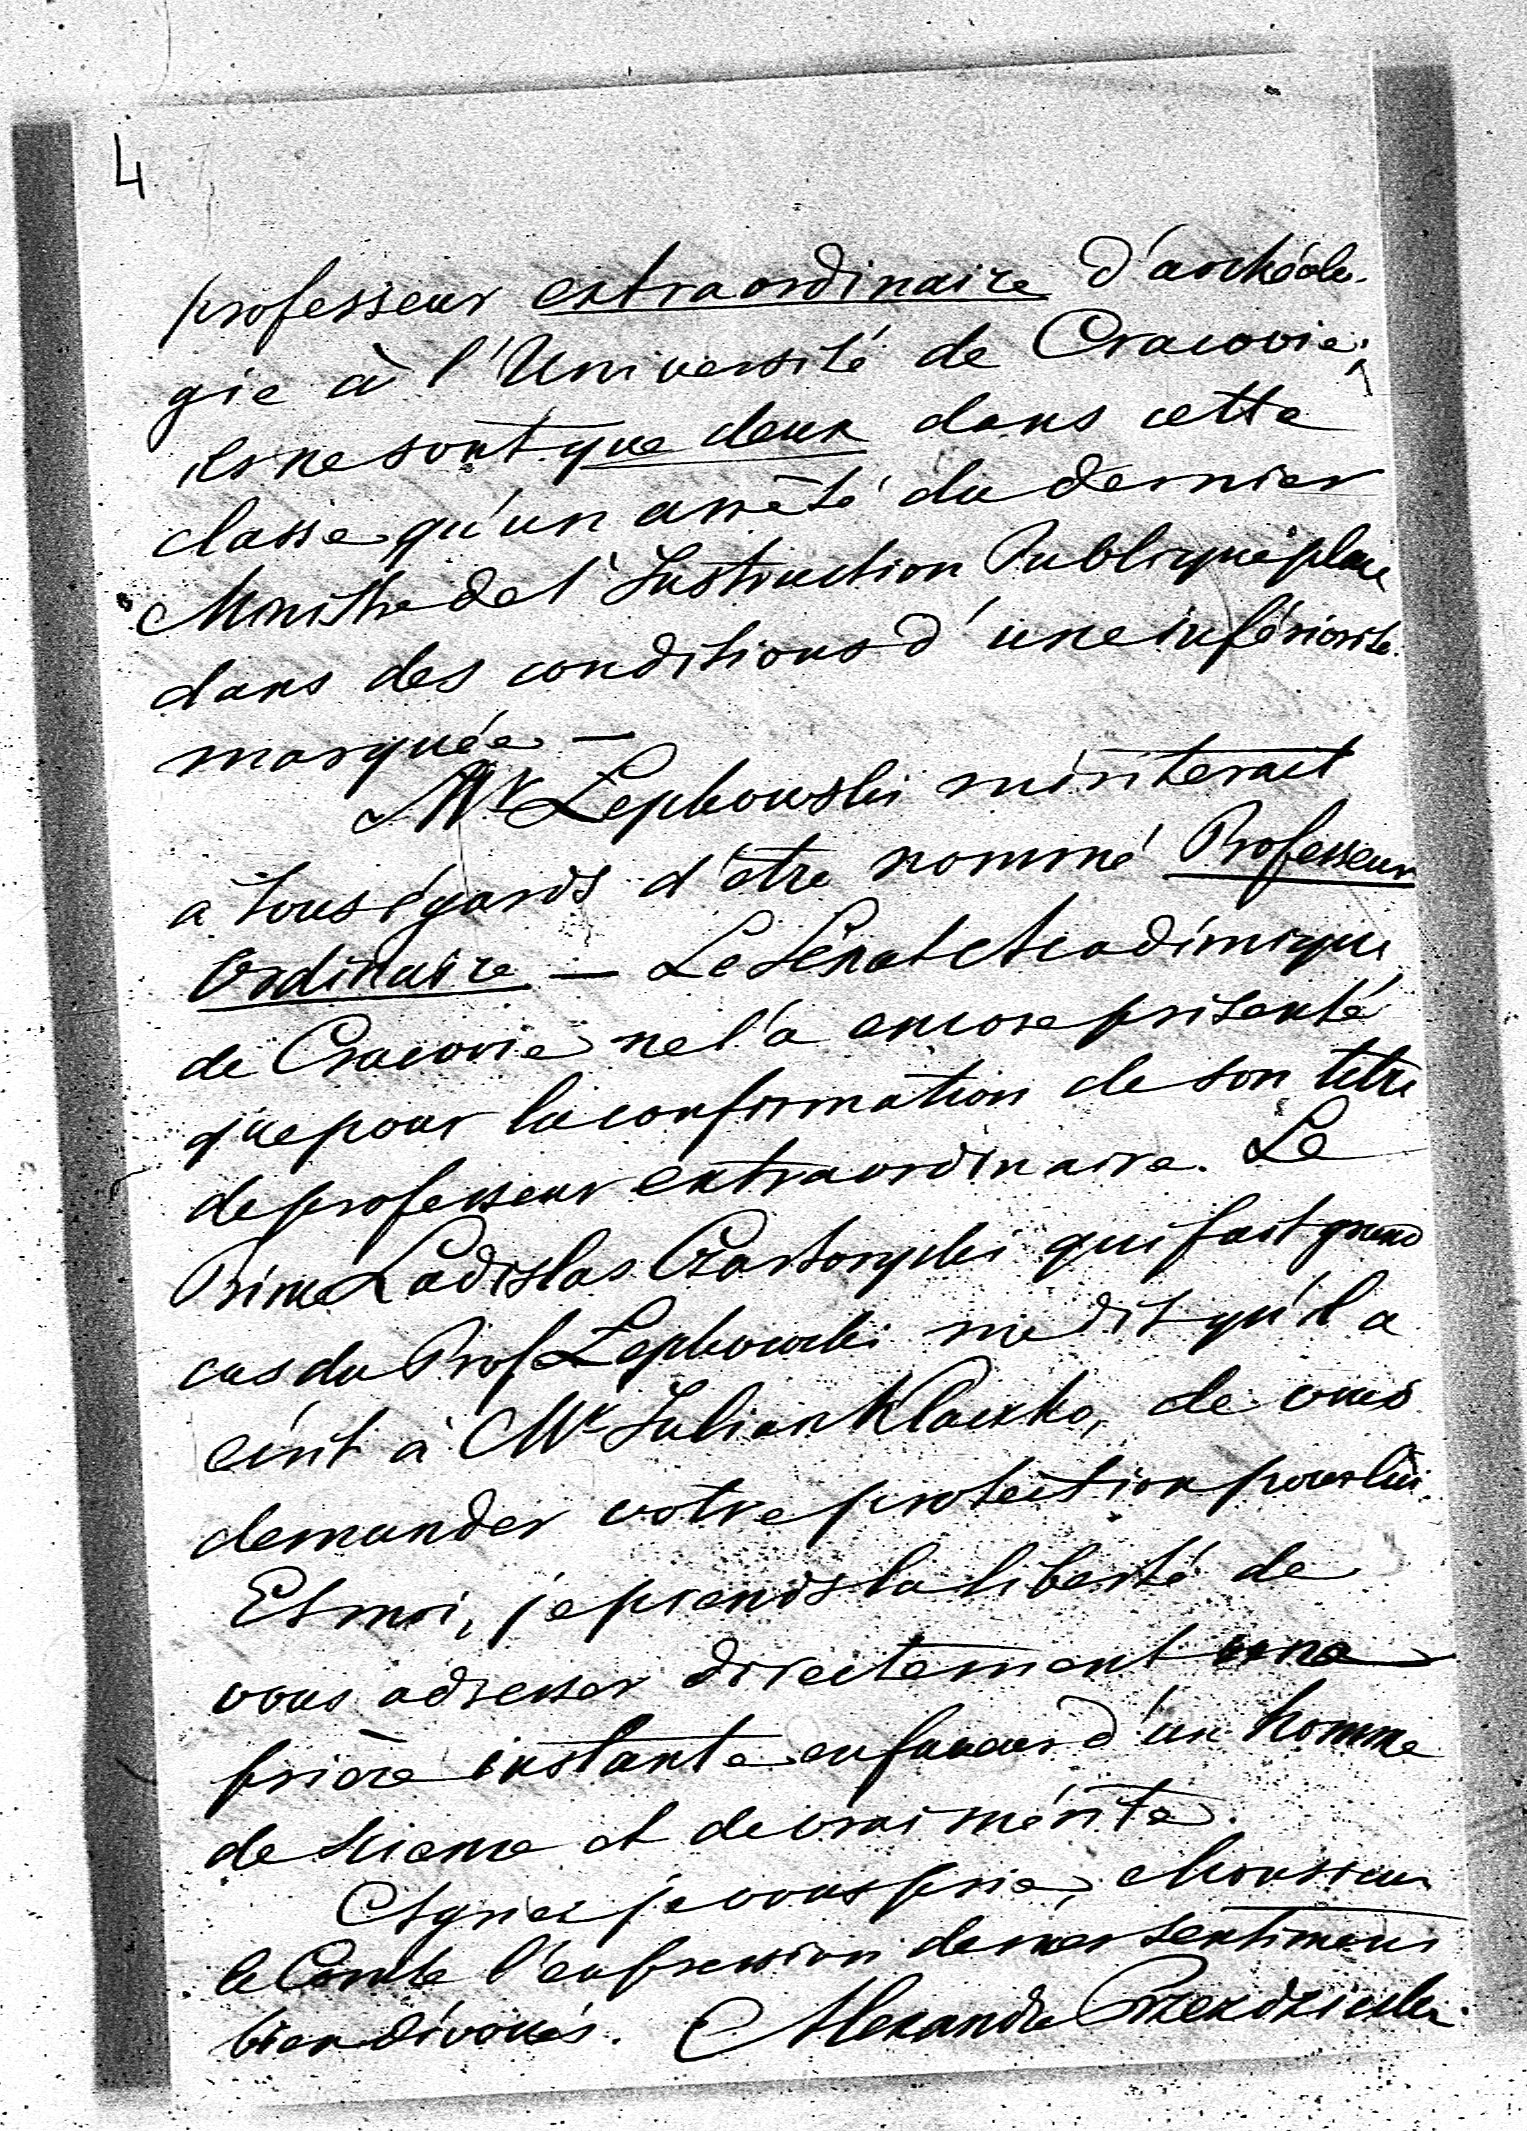 4
professeur extraordinaire d'archéolo-
gie à l'Université de Cracovie;
ils ne sont que deux dans cette
classe qu'un arrêté du dernier
Ministre de l'Instruction Publique place
dans des conditions d'une infériorité
marquée —
Mr Lepkowski mériterait
a tous égards d'être nommé Professeur
Ordinaire — Le Sénat Académique
de Cracovie ne l'a encore présenté
que pour la confirmation de son titre
de professeur extraordinaire. Le
Prince Ladislas Czartoryski qui fait grand
cas du Prof Lepkowski me dit qu'il a
écrit à Mr Julian Klaczko, de vous
demander votre protection pour lui.
Et moi, je prends la liberté de
vous adresser directement une
prière instante en faveur d'un homme
de science et de vrai mérite.
Agréez je vous prie, Monsieur
le Comte l'expression de mes sentimens
bien dévoués. Alexandre Przezdziecki